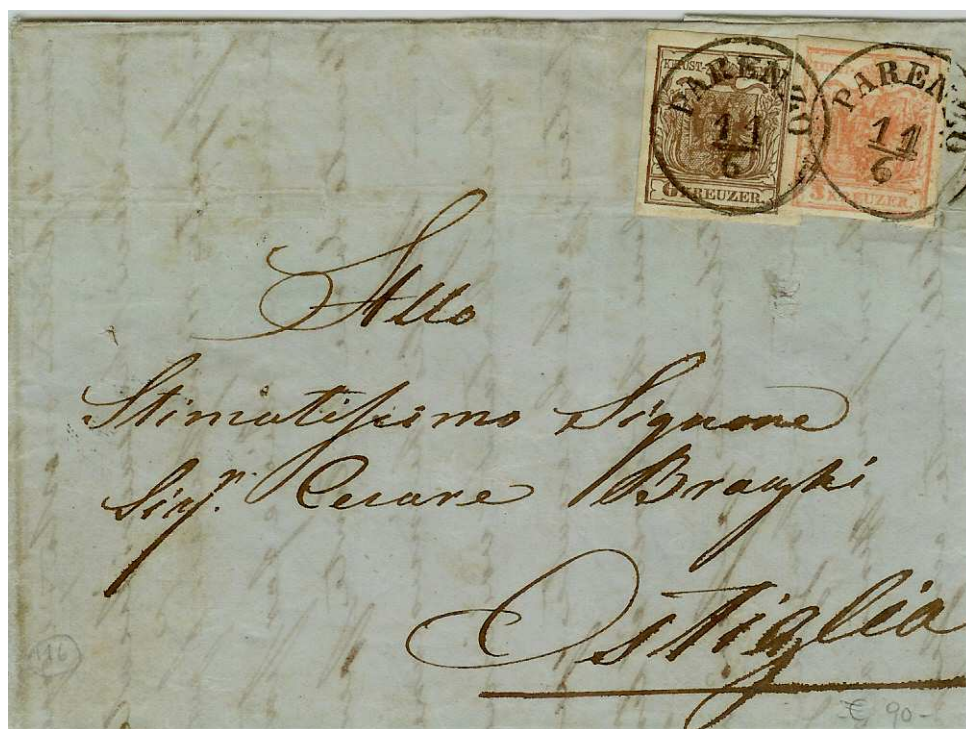 KK POST-STEMPEL
PARENZO
11
6
6 KREUZER.
PARENZO
11
6
3 KREUZER.
Allo
Stimatissimo Signore
Sigr. Cesare Braghi
Ostiglia
116
€ 90-